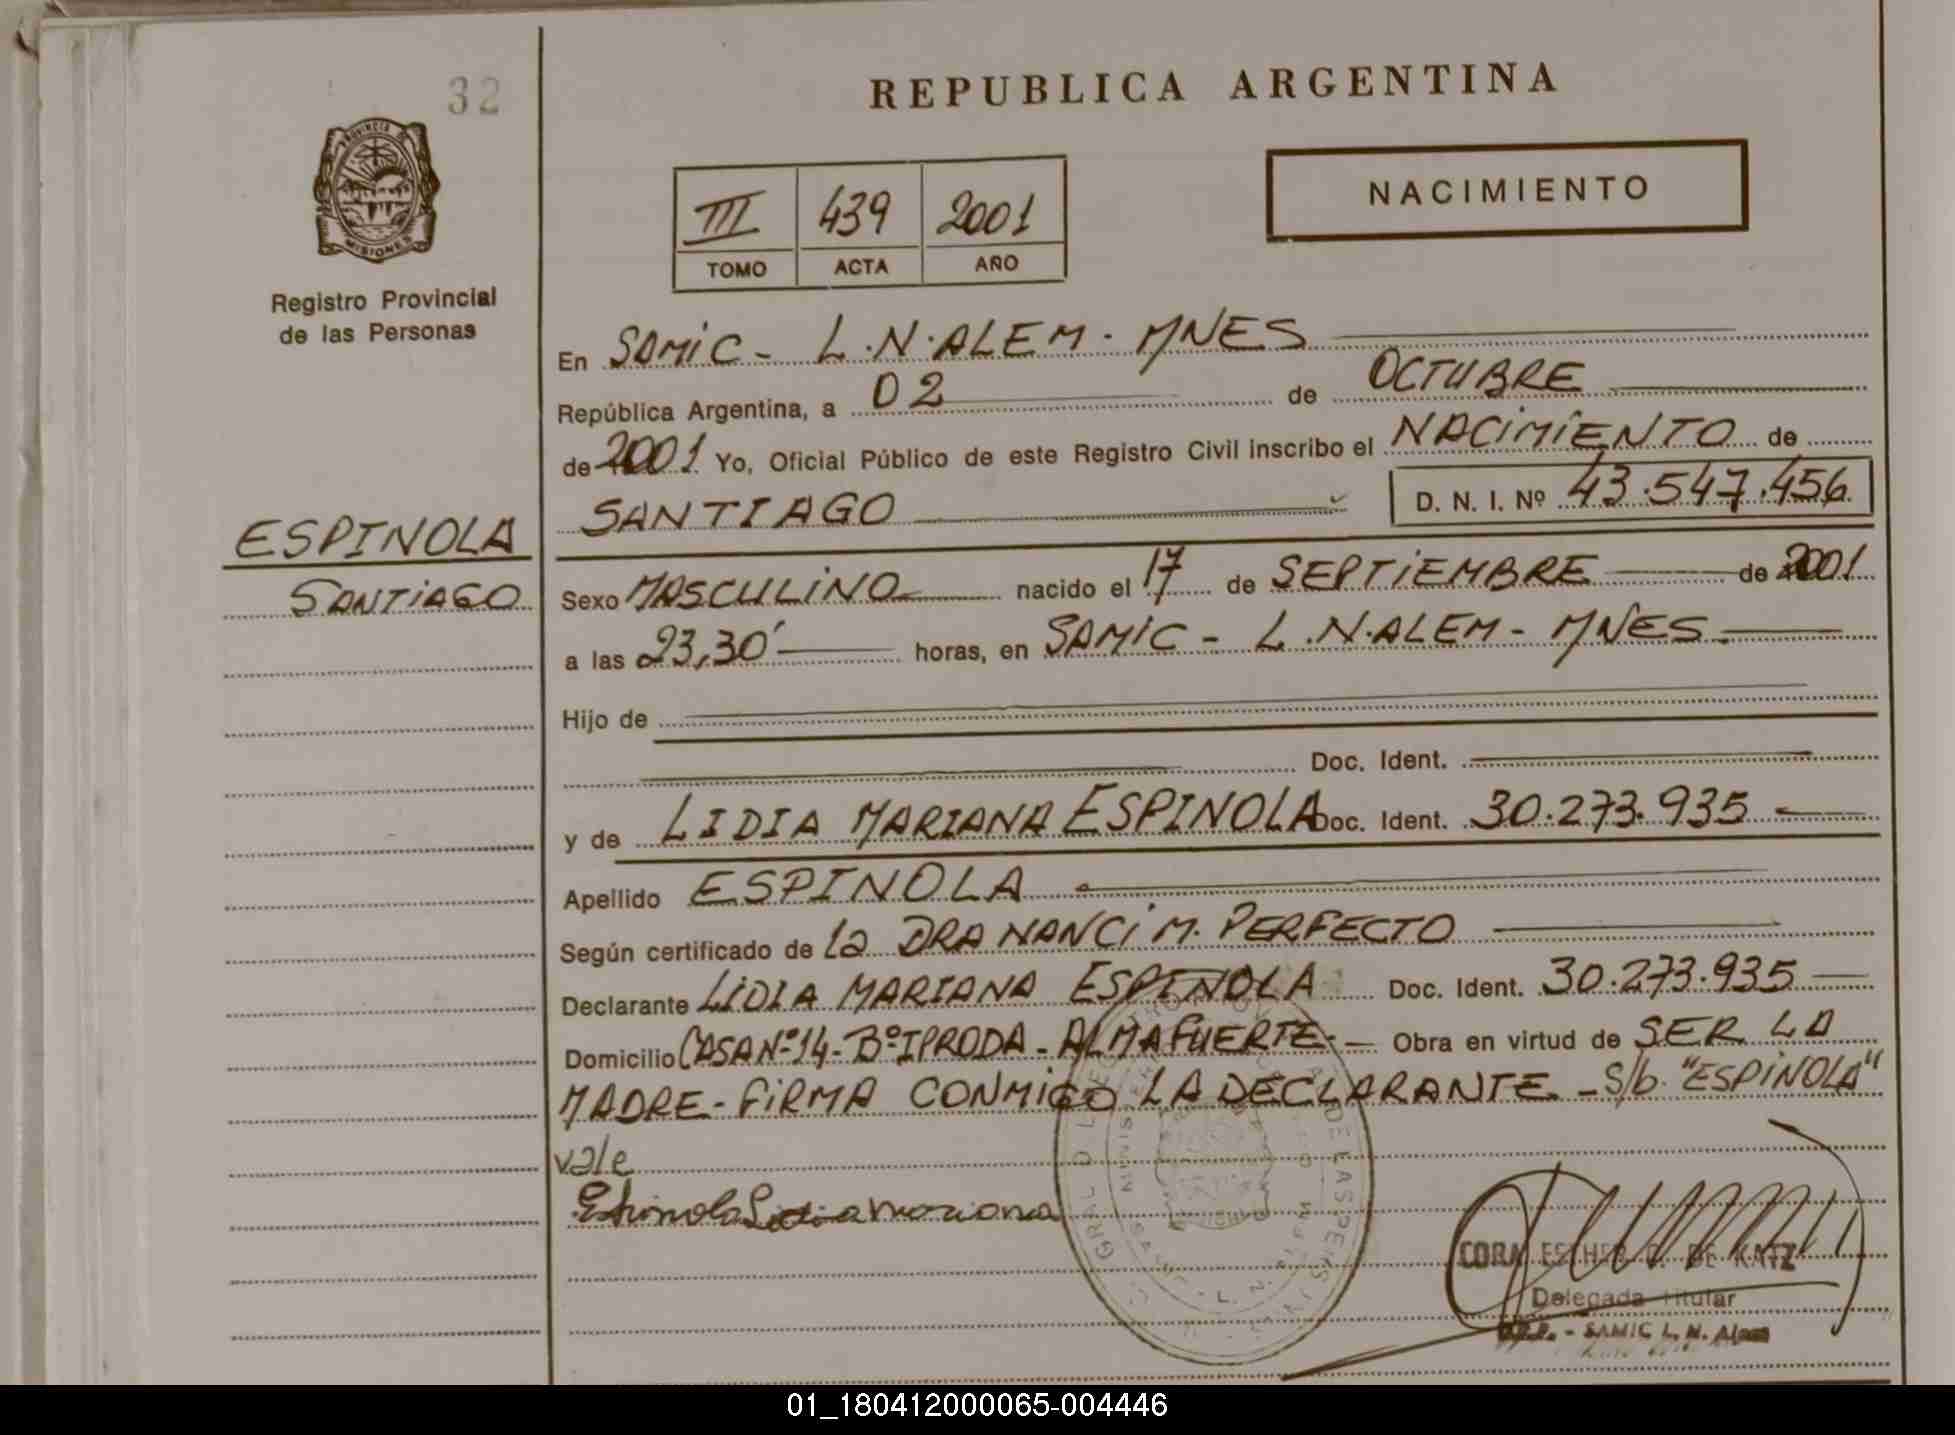 32
REPUBLICA ARGENTINA
PROVINCIA DE
MISIONES
Registro Provincial
de las Personas
III 439 2001
TOMO ACTA AÑO
NACIMIENTO
En SAMIC - L.N.ALEM - MNES
República Argentina, a 02 de OCTUBRE
de 2001 Yo, Oficial Público de este Registro Civil inscribo el NACIMIENTO de
SANTIAGO D. N. I. Nº 43.547.456
ESPINOLA
SANTIAGO
Sexo MASCULINO nacido el 17 de SEPTIEMBRE de 2001
a las 23,30' horas, en SAMIC - L.N.ALEM - MNES
Hijo de
Doc. Ident.
y de LIDIA MARIANA ESPINOLA Doc. Ident. 30.273.935
Apellido ESPINOLA
Según certificado de la DRA NANCI M. PERFECTO
Declarante LIDIA MARIANA ESPINOLA Doc. Ident. 30.273.935
Domicilio CASA Nº 14 - Bº IPRODA - ALMAFUERTE - Obra en virtud de SER LA
MADRE - FIRMA CONMIGO LA DECLARANTE - S/b. "ESPINOLA"
vale
Espinola Lidia Mariana
CORA ESTHER D. DE KATZ
Delegada Titular
SAMIC L. N. Alem
01_180412000065-004446